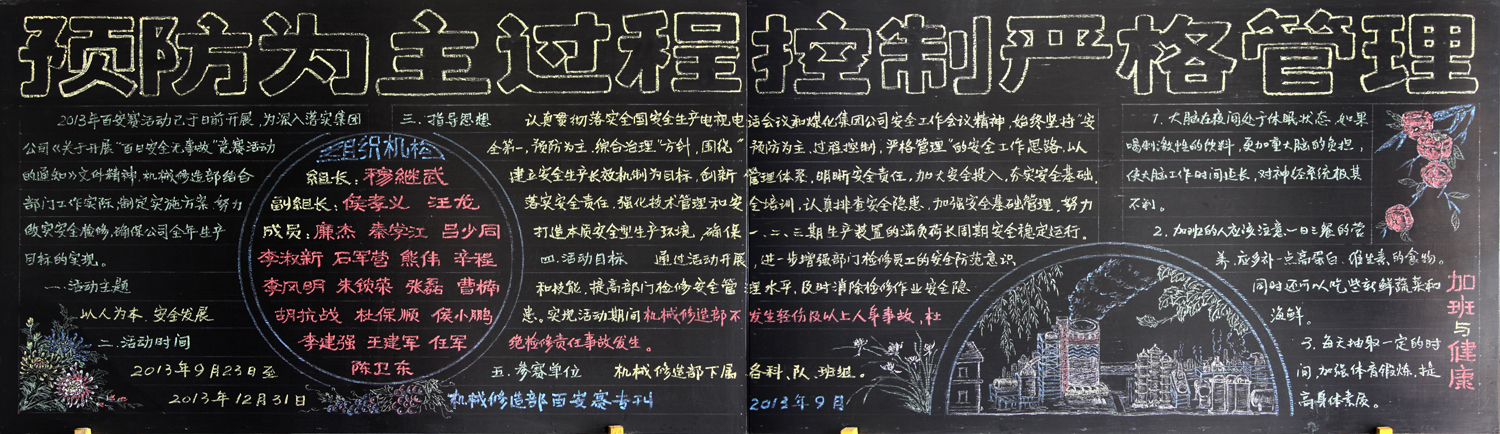 预防为主过程控制严格管理
2013年百安赛活动已于日前开展,为深入落实集团
公司《关于开展“百日安全无事故”竞赛活动
的通知》文件精神,机械修造部结合
部门工作实际,制定实施方案,努力
做实安全检修,确保公司全年生产
目标的实现。
一、活动主题
以人为本、安全发展
二、活动时间
2013年9月23日至
2013年12月31日
组织机构
组长:穆继武
副组长:侯孝义 汪龙
成员:廉杰 秦学江 吕少同
李淑新 石军营 熊伟 辛程
李凤明 朱锁荣 张磊 曹楠
胡抗战 杜保顺 侯小鹏
李建强 王建军 任军
陈卫东
三、指导思想 认真贯彻落实全国安全生产电视电话会议和煤化集团公司安全工作会议精神,始终坚持“安
全第一,预防为主,综合治理”方针,围绕“预防为主,过程控制,严格管理”的安全工作思路,以
建立安全生产长效机制为目标,创新管理体系,明晰安全责任,加大安全投入,夯实安全基础,
落实安全责任,强化技术管理和安全培训,认真排查安全隐患,加强安全基础管理,努力
打造本质安全型生产环境,确保一、二、三期生产装置的满负荷长周期安全稳定运行。
四、活动目标 通过活动开展,进一步增强部门检修员工的安全防范意识
和技能,提高部门检修安全管理水平,及时消除检修作业安全隐
患。实现活动期间机械修造部不发生轻伤及以上人身事故,杜
绝检修责任事故发生。
五、参赛单位 机械修造部下属各科、队、班组。
机械修造部百安赛专刊 2013年9月
1、大脑在夜间处于休眠状态,如果
喝刺激性的饮料,更加重大脑的负担,
使大脑工作时间延长,对神经系统极其
不利。
2、加班的人应该注意一日三餐的营
养,应多补一点高蛋白、维生素的食物。
同时还可以吃些新鲜蔬菜和
海鲜。
3、每天抽取一定的时
间,加强体育锻炼,提
高身体素质。
加班与健康